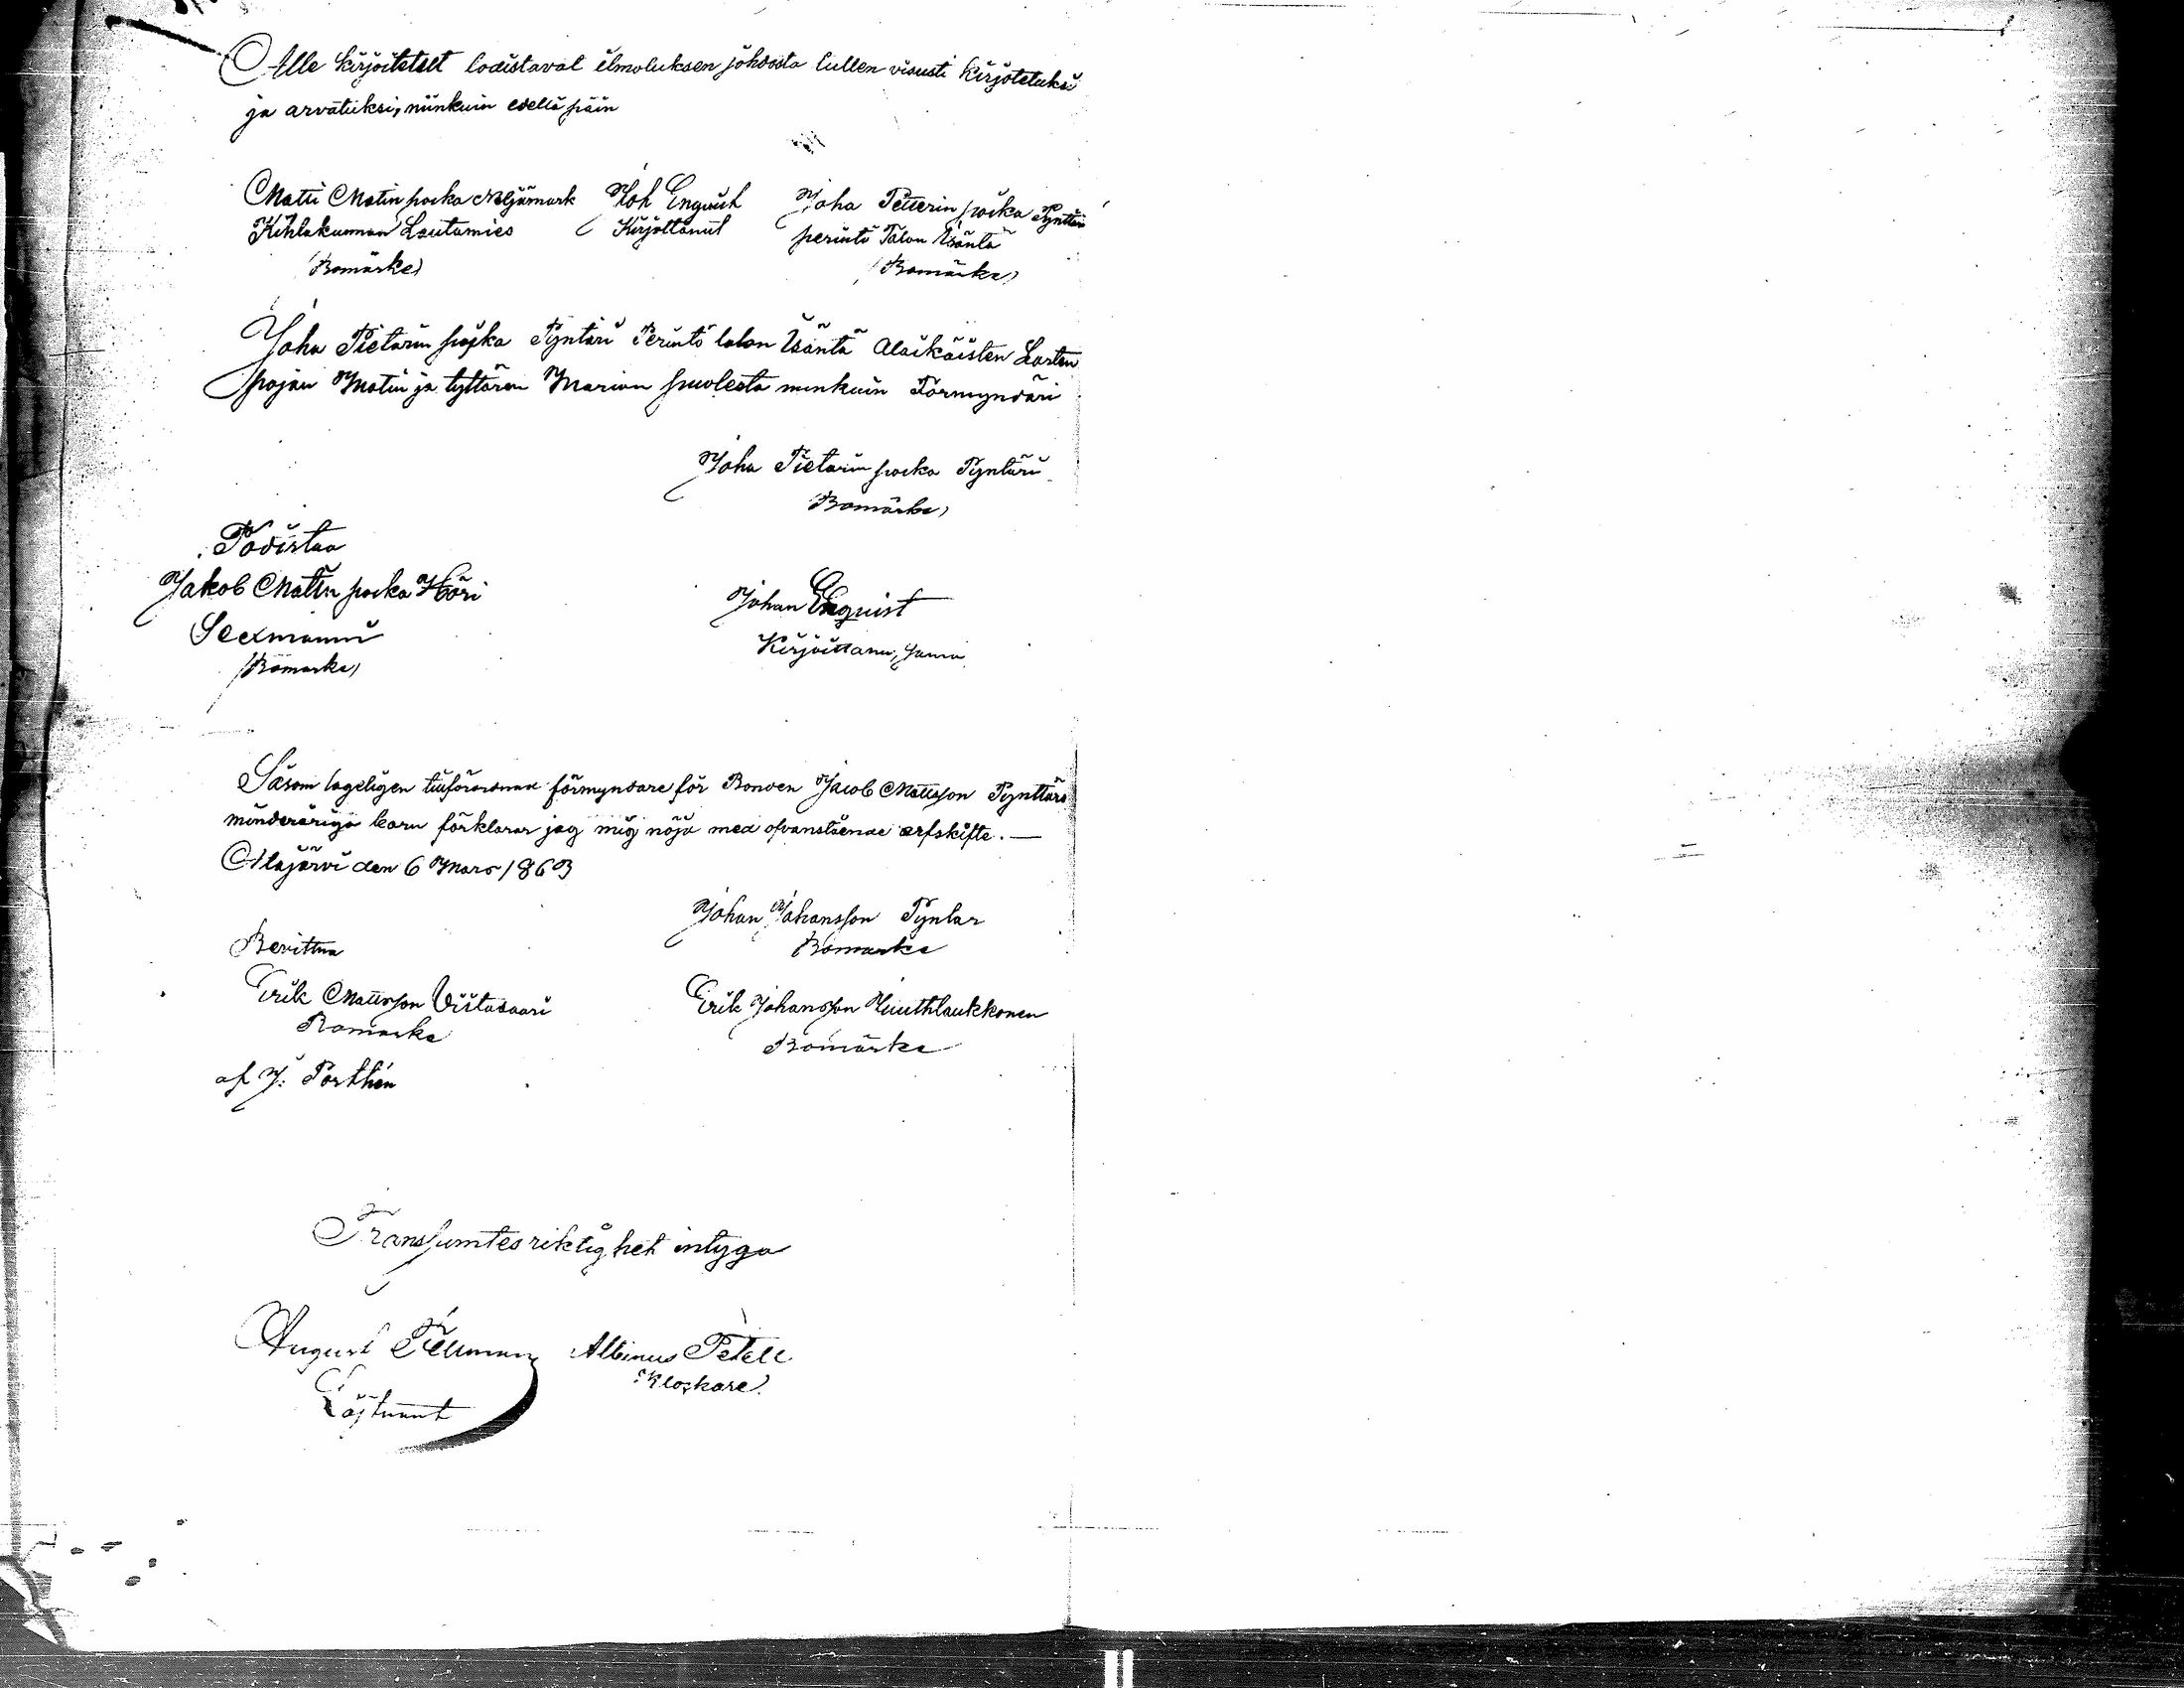 Alle kirjoitetut todistavat ilmotuksen johdosta tullen visusti kirjotetuksi
ja arvatuksi, niinkuin edellä päin
Matti Matin poika Neljämark Joh Enquist Joha Petterin poika Pynttäri
Kihlakunnan Lautamies Kirjottanut perintö Talon Isäntä
(Bomärke) (Bomärke)
Joha Pietarin pojka Pyntäri Perintö talon Isäntä Alaikäisten Lasten
pojan Matin ja tyttären Marian puolesta niinkuin Förmyndäri
Joha Pietarin poika Pyntäri
(Bomärke)
Todistaa
Jakob Matin poika Höri
Sexmanni
(Bomärke)
Johan Enquist
Kirjoittanu,
Såsom lageligen tillförordnad förmyndare för Bonden Jacob Mattsson Pynttäris
minderåriga barn förklarar jag mig nöjd med ofvanstående arfskifte. —
Alajärvi den 6 Mars 1863
Johan Johansson Pyntär
Bomärke
Bevittna
Erik Mattsson Viitasaari Erik Johansson Huuthlaukkonen
Bomärke Bomärke
af J: Porthén
Transsumtes riktighet intyga
August Fellman Albinus Petell
Löjtnant Klockare.